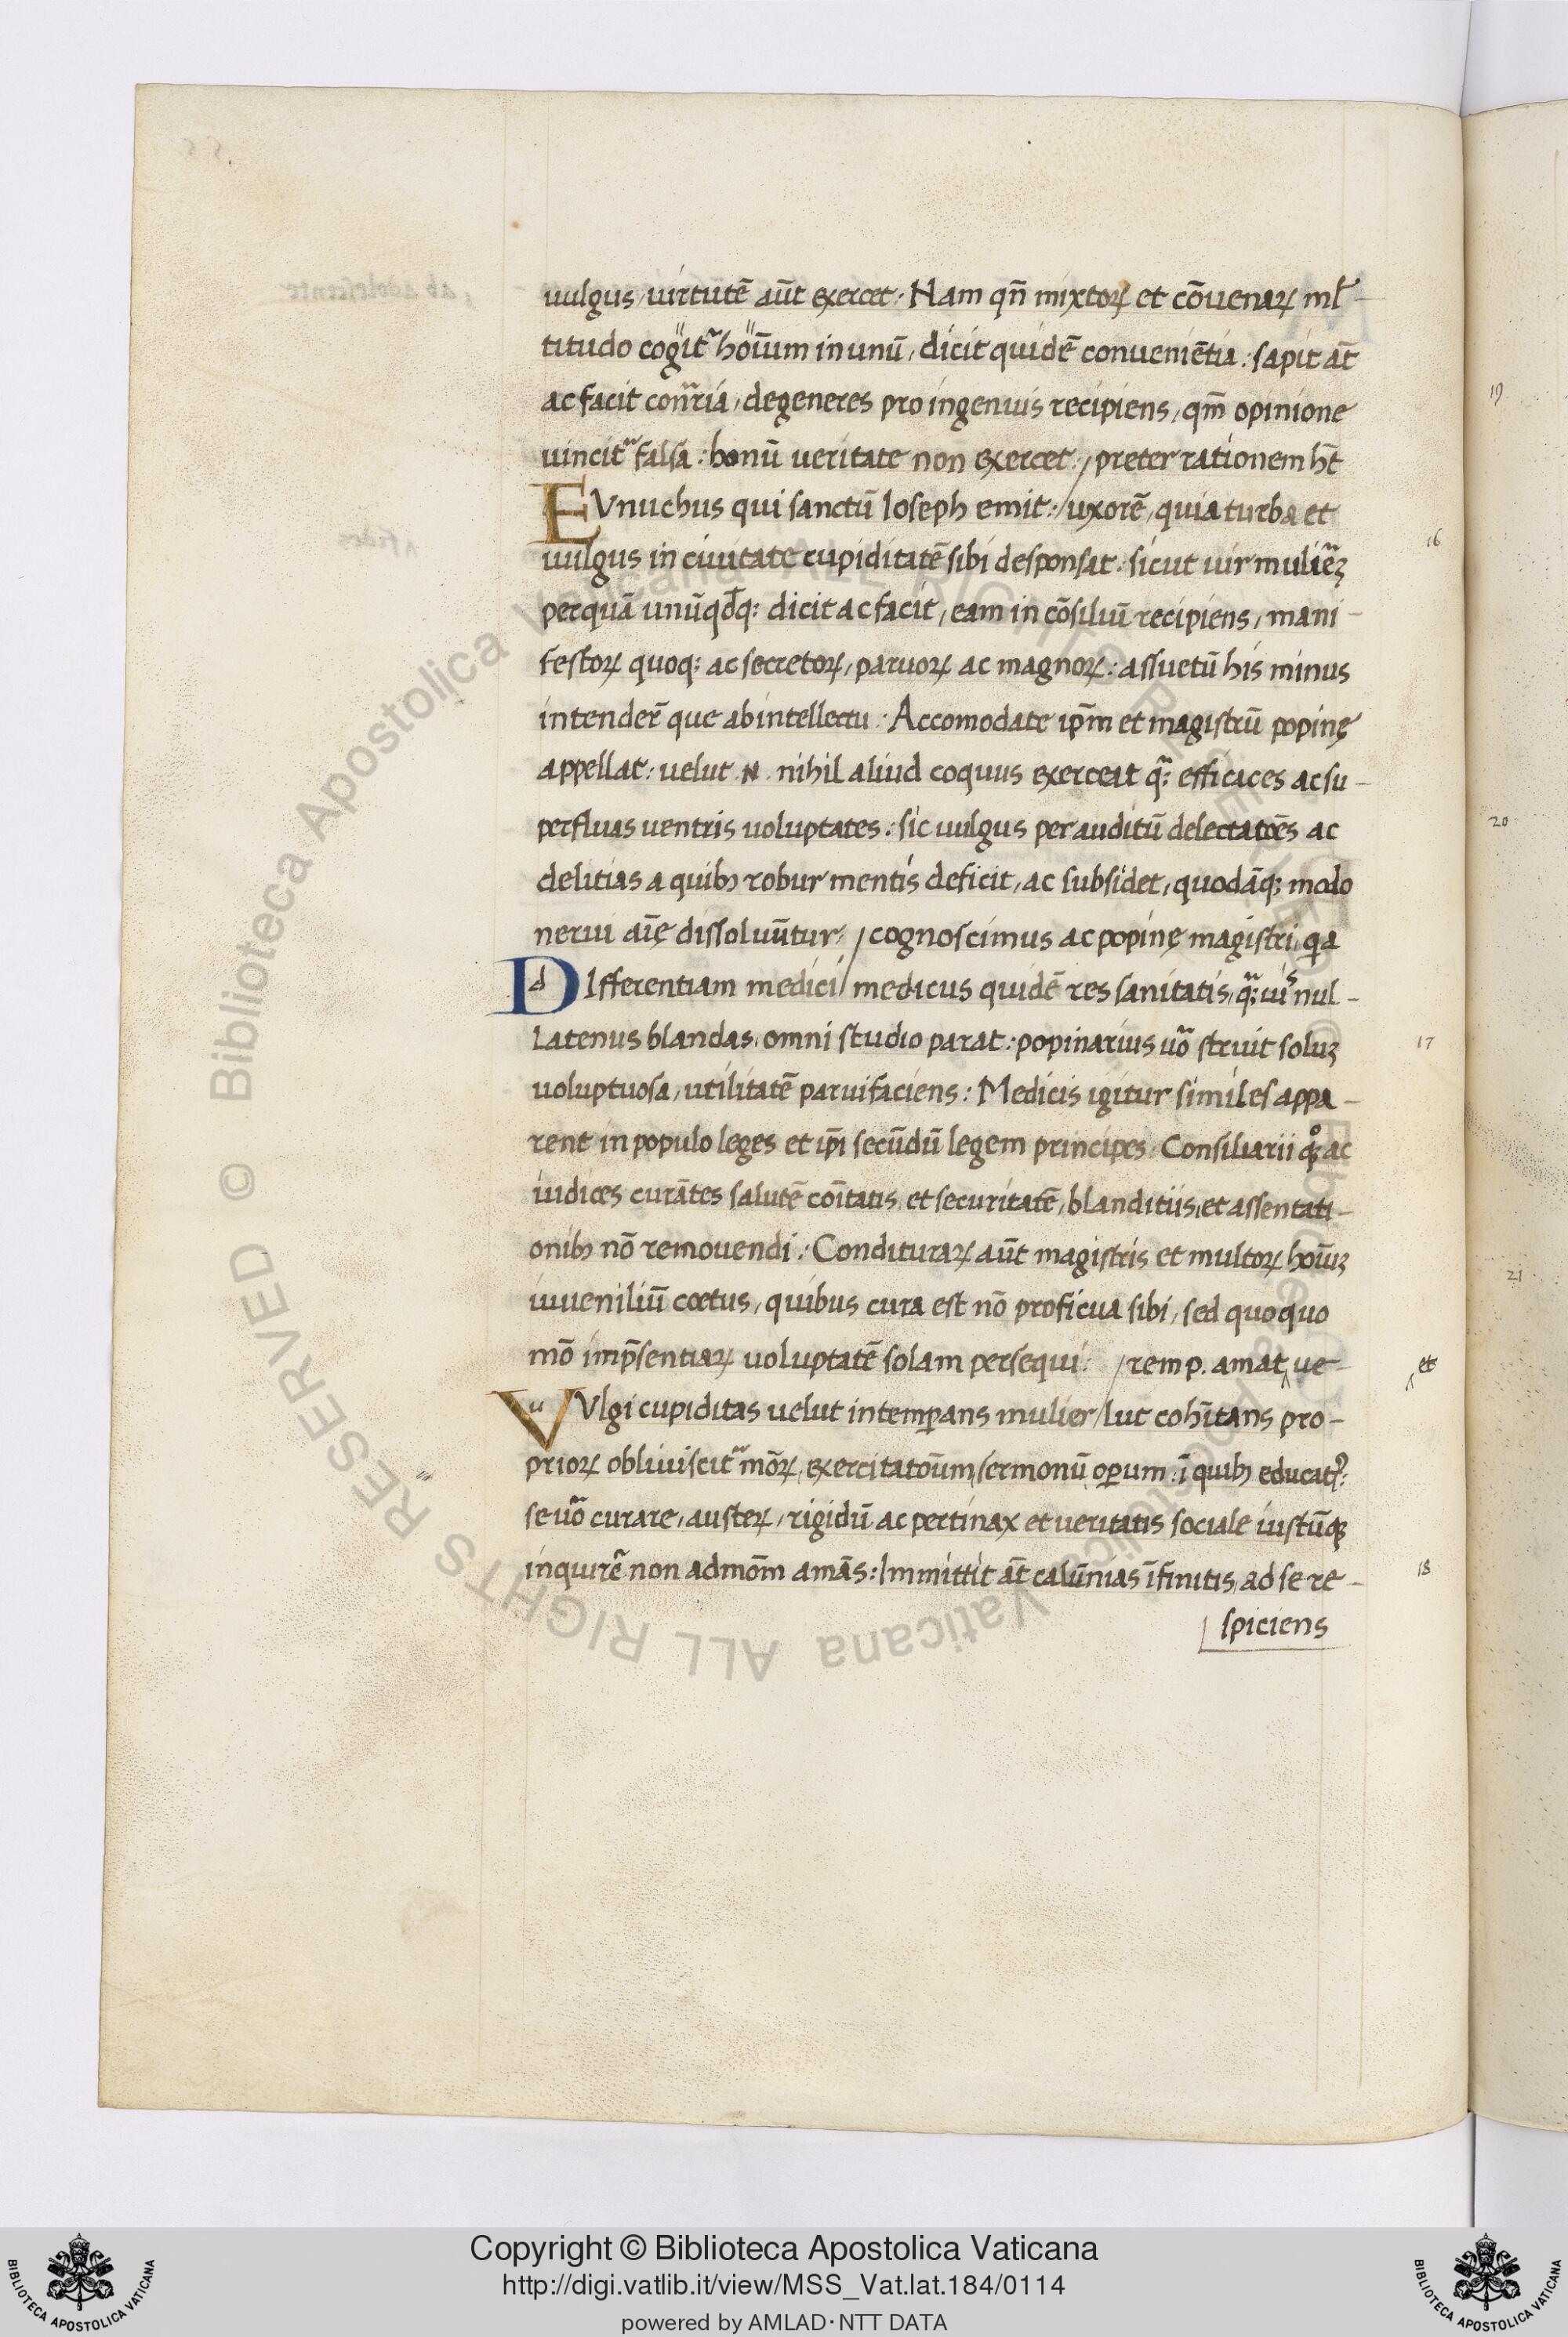 uulgus, uirtutē aūt exercet. Nam qñ mixtoꝝ et cōuenaꝝ ml̃-
titudo cogit᷑ hoīum in unū, dicit quidē conueniētia: sapit āt
ac facit con̄ria, degeneres pro ingenuis recipiens, qm̄ opinione
uincit᷑ falsa: bonū ueritate non exercet: / preter rationem hēt
EVnuchus qui sanctū Ioseph emit: / uxorē, quia turba et
uulgus in ciuitate cupiditatē sibi desponsat: sicut uir muliēꝫ
perquā unūqd̄q: dicit ac facit, eam in cōsiliū recipiens, mani-
festoꝝ quoq: ac secretoꝝ, paruoꝝ ac magnoꝝ: assuetū his minus
intender̄ que ab intellectu: Accomodate ip̄m et magistrū popinę
appellat: uelut .N. nihil aliud coquus exerceat q̄: efficaces ac su-
perfluas uentris uoluptates: sic uulgus per auditū delectatōes ac
delitias a quibꝫ robur mentis deficit, ac subsidet, quodāqꝫ modo
nerui aīę dissoluūtur: / cognoscimus ac popinę magistri, q̄a
DIfferentiam medici / medicus quidē res sanitatis, q̄:uis nul-
Latenus blandas, omni studio parat: popinarius uo᷑ struit soluꝫ
uoluptuosa, utilitatē paruifaciens: Medicis igitur similes appa-
rent in populo leges et ip̄i secūdū legem principes. Consiliarii qꝫ° ac
iudices curātes salutē coītatis, et securitatē, blanditiis, et assentati-
onibꝫ nō remouendi: Condituraꝝ aūt magistris et multoꝝ hoīuꝫ
iuueniliū cœtus, quibus cura est nō proficua sibi, sed quoquo
mō imp̄sentiaꝝ uoluptatē solam persequi: / rem p. amat, ue-
VUlgi cupiditas uelut intemꝑans mulier / lut coh̄itans pro-
prioꝝ obliuiscit᷑ mōꝝ, exercitatoūm, sermonū, oꝑum: ī quibꝫ educat᷑:
se uo᷑ curare, austeꝝ, rigidū ac pertinax et ueritatis sociale iustūqꝫ
inquirē non admōm amās: Immittit āt calūnias īfinitis, ad se re-
spiciens
16
17
et
18
19
20
21
Copyright © Biblioteca Apostolica Vaticana
http://digi.vatlib.it/view/MSS_Vat.lat.184/0114
powered by AMLAD·NTT DATA
BIBLIOTECA APOSTOLICA VATICANA
BIBLIOTECA APOSTOLICA VATICANA